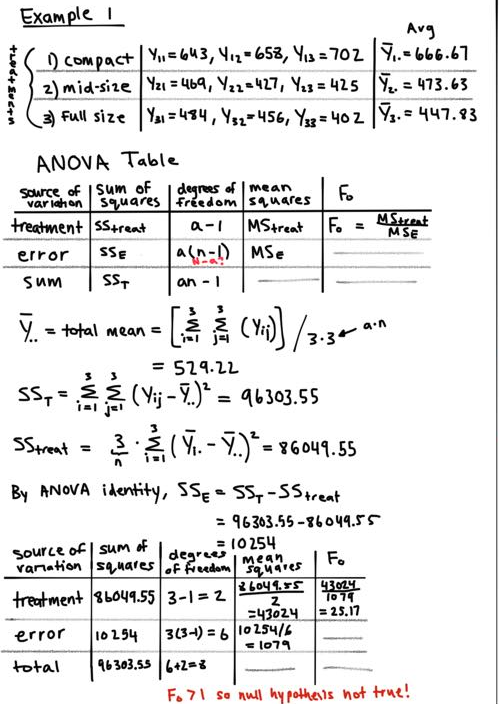 Example 1
Avg
treatments
1) compact | Y11 = 643, Y12 = 658, Y13 = 702 | Ȳ1. = 666.67
2) mid-size | Y21 = 469, Y22 = 427, Y23 = 425 | Ȳ2. = 473.63
3) Full size | Y31 = 484, Y32 = 456, Y33 = 402 | Ȳ3. = 447.83
ANOVA Table
source of variation | sum of squares | degrees of freedom | mean squares | F₀
treatment | SStreat | a-1 | MStreat | F₀ = MStreat / MSE
error | SSE | a(n-1) | MSE
N-a!
sum | SST | an-1
Ȳ.. = total mean = [Σ(i=1 to 3) Σ(j=1 to 3) (Yij)] / 3·3 ← a·n
= 529.22
SST = Σ(i=1 to 3) Σ(j=1 to 3) (Yij - Ȳ..)² = 96303.55
SStreat = 3/n · Σ(i=1 to 3) (Ȳ1. - Ȳ..)² = 86049.55
By ANOVA identity, SSE = SST - SStreat
= 96303.55 - 86049.55
= 10254
source of variation | sum of squares | degrees of freedom | mean squares | F₀
treatment | 86049.55 | 3-1 = 2 | 86049.55 / 2 = 43024 | 43024 / 1079 = 25.17
error | 10254 | 3(3-1) = 6 | 10254/6 = 1079
total | 96303.55 | 6+2=8
F₀ > 1 so null hypothesis not true!